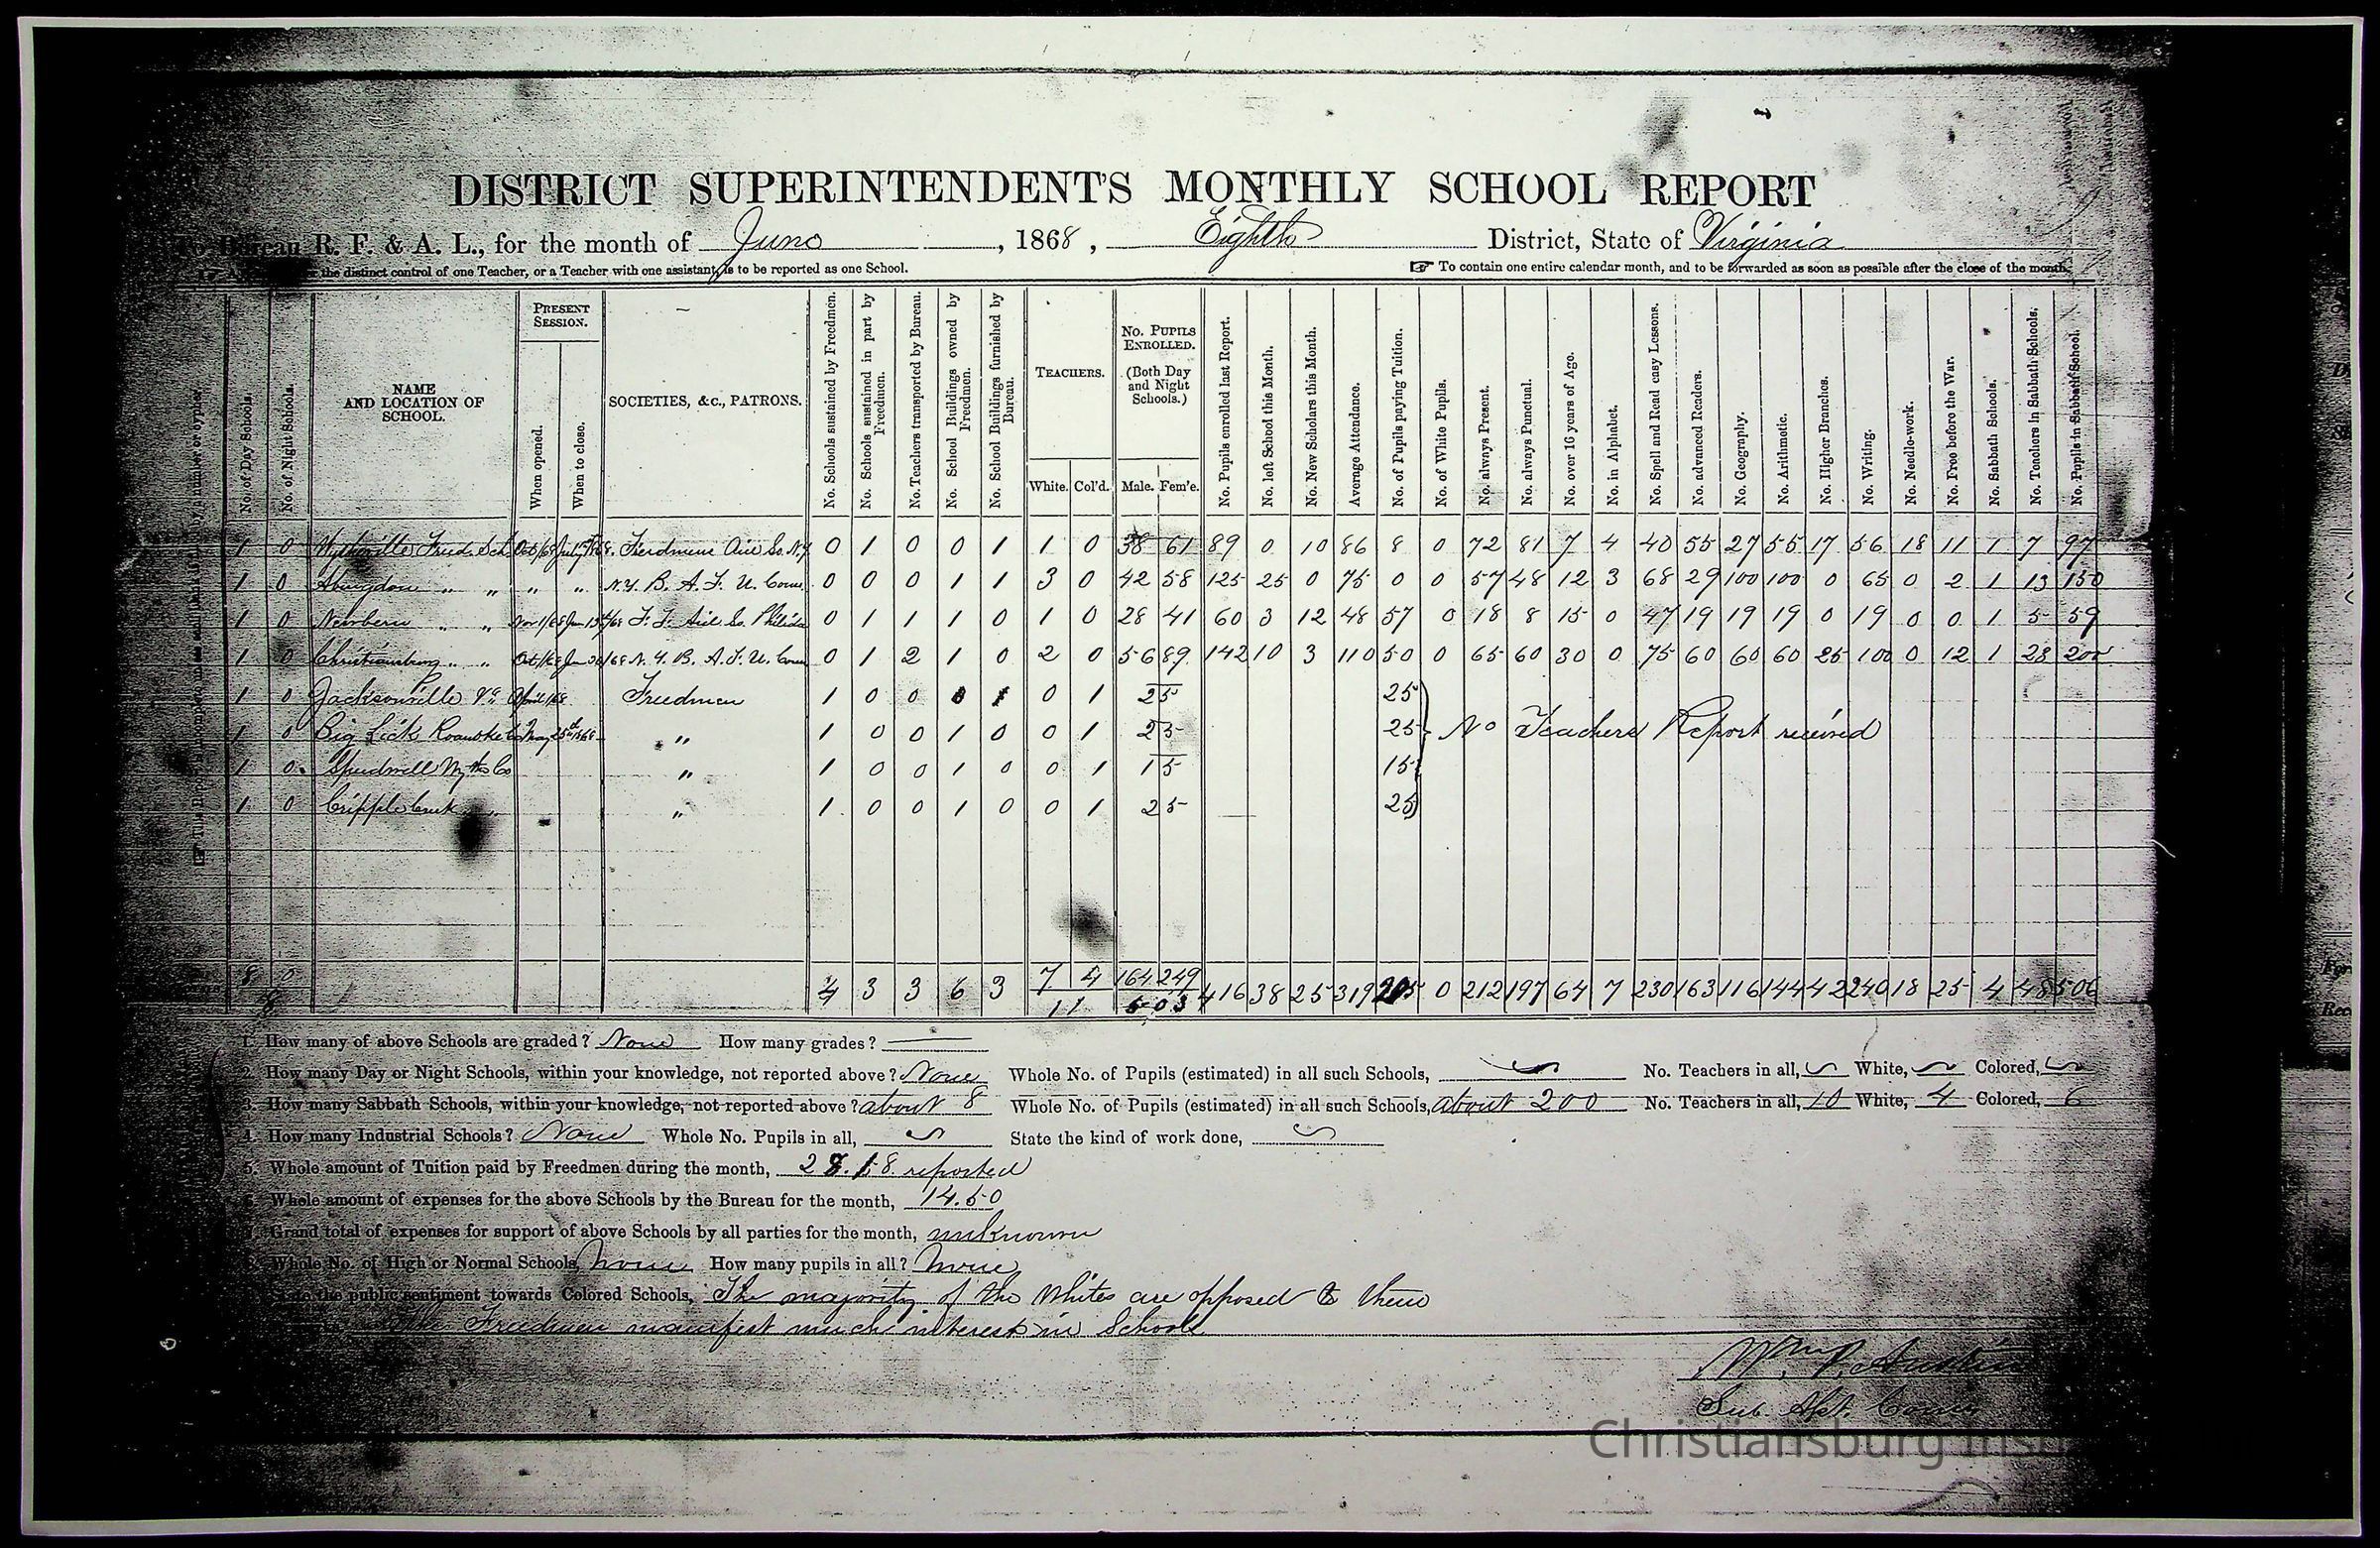 DISTRICT SUPERINTENDENT'S MONTHLY SCHOOL REPORT
Bureau R. F. & A. L., for the month of June, 1868, Eighth District, State of Virginia
the distinct control of one Teacher, or a Teacher with one assistant, is to be reported as one School.
☞ To contain one entire calendar month, and to be forwarded as soon as possible after the close of the month.
No. of Day Schools.
No. of Night Schools.
NAME AND LOCATION OF SCHOOL.
PRESENT SESSION.
When opened.
When to close.
SOCIETIES, &c., PATRONS.
No. Schools sustained by Freedmen.
No. Schools sustained in part by Freedmen.
No. Teachers transported by Bureau.
No. School Buildings owned by Freedmen.
No. School Buildings furnished by Bureau.
TEACHERS.
White. Col'd.
No. PUPILS ENROLLED.
(Both Day and Night Schools.)
Male. Fem'e.
No. Pupils enrolled last Report.
No. left School this Month.
No. New Scholars this Month.
Average Attendance.
No. of Pupils paying Tuition.
No. of White Pupils.
No. always Present.
No. always Punctual.
No. over 16 years of Age.
No. in Alphabet.
No. Spell and Read easy Lessons.
No. advanced Readers.
No. Geography.
No. Arithmetic.
No. Higher Branches.
No. Writing.
No. Needle-work.
No. Free before the War.
No. Sabbath Schools.
No. Teachers in Sabbath Schools.
No. Pupils in Sabbath School.
1 0 Wytheville Freed. Sch 0 1 0 0 1 1 0 38 61 89 0 10 86 8 0 72 81 7 4 40 55 27 55 17 56 18 11 1 7 97
1 0 Abingdon " " " " N.Y. B. A. F. U. Com. 0 0 0 1 1 3 0 42 58 125 25 0 75 0 0 57 48 12 3 68 29 100 100 0 65 0 2 1 13 150
1 0 Newbern " " F. F. Aid So. Philada 0 1 1 1 0 1 0 28 41 60 3 12 48 57 0 18 8 15 0 47 19 19 19 0 19 0 0 1 5 59
1 0 Christiansburg " " N. Y. B. A. F. U. Com 0 1 2 1 0 2 0 56 89 142 10 3 110 50 0 65 60 30 0 75 60 60 60 25 100 0 12 1 23 200
1 0 Jacksonville Va April/68 Freedmen 1 0 0 0 1 25 25
1 0 Big Lick Roanoke Co May 25th 1868 " 1 0 0 1 0 0 1 25 25 No Teachers Report received
1 0 Speedwell Wythe Co " 1 0 0 1 0 0 1 15 15
1 0 Cripple Creek " " 1 0 0 1 0 0 1 25 25
8 0 4 3 3 6 3 7 4 164 249 416 38 25 319 205 0 212 197 64 7 230 163 116 144 42 240 18 25 4 48 506
8 11 503
1. How many of above Schools are graded? None How many grades?
2. How many Day or Night Schools, within your knowledge, not reported above? None Whole No. of Pupils (estimated) in all such Schools, No. Teachers in all, White, Colored,
3. How many Sabbath Schools, within your knowledge, not reported above? about 8 Whole No. of Pupils (estimated) in all such Schools, about 200 No. Teachers in all, 10 White, 4 Colored, 6
4. How many Industrial Schools? None Whole No. Pupils in all, State the kind of work done,
5. Whole amount of Tuition paid by Freedmen during the month, reported
6. Whole amount of expenses for the above Schools by the Bureau for the month, 14.50
7. Grand total of expenses for support of above Schools by all parties for the month, unknown
8. Whole No. of High or Normal Schools, None How many pupils in all? None
State the public sentiment towards Colored Schools, The majority of the Whites are opposed to them
The Freedmen manifest much interest in Schools
Sub. Asst. Comr
Christiansburg Inst